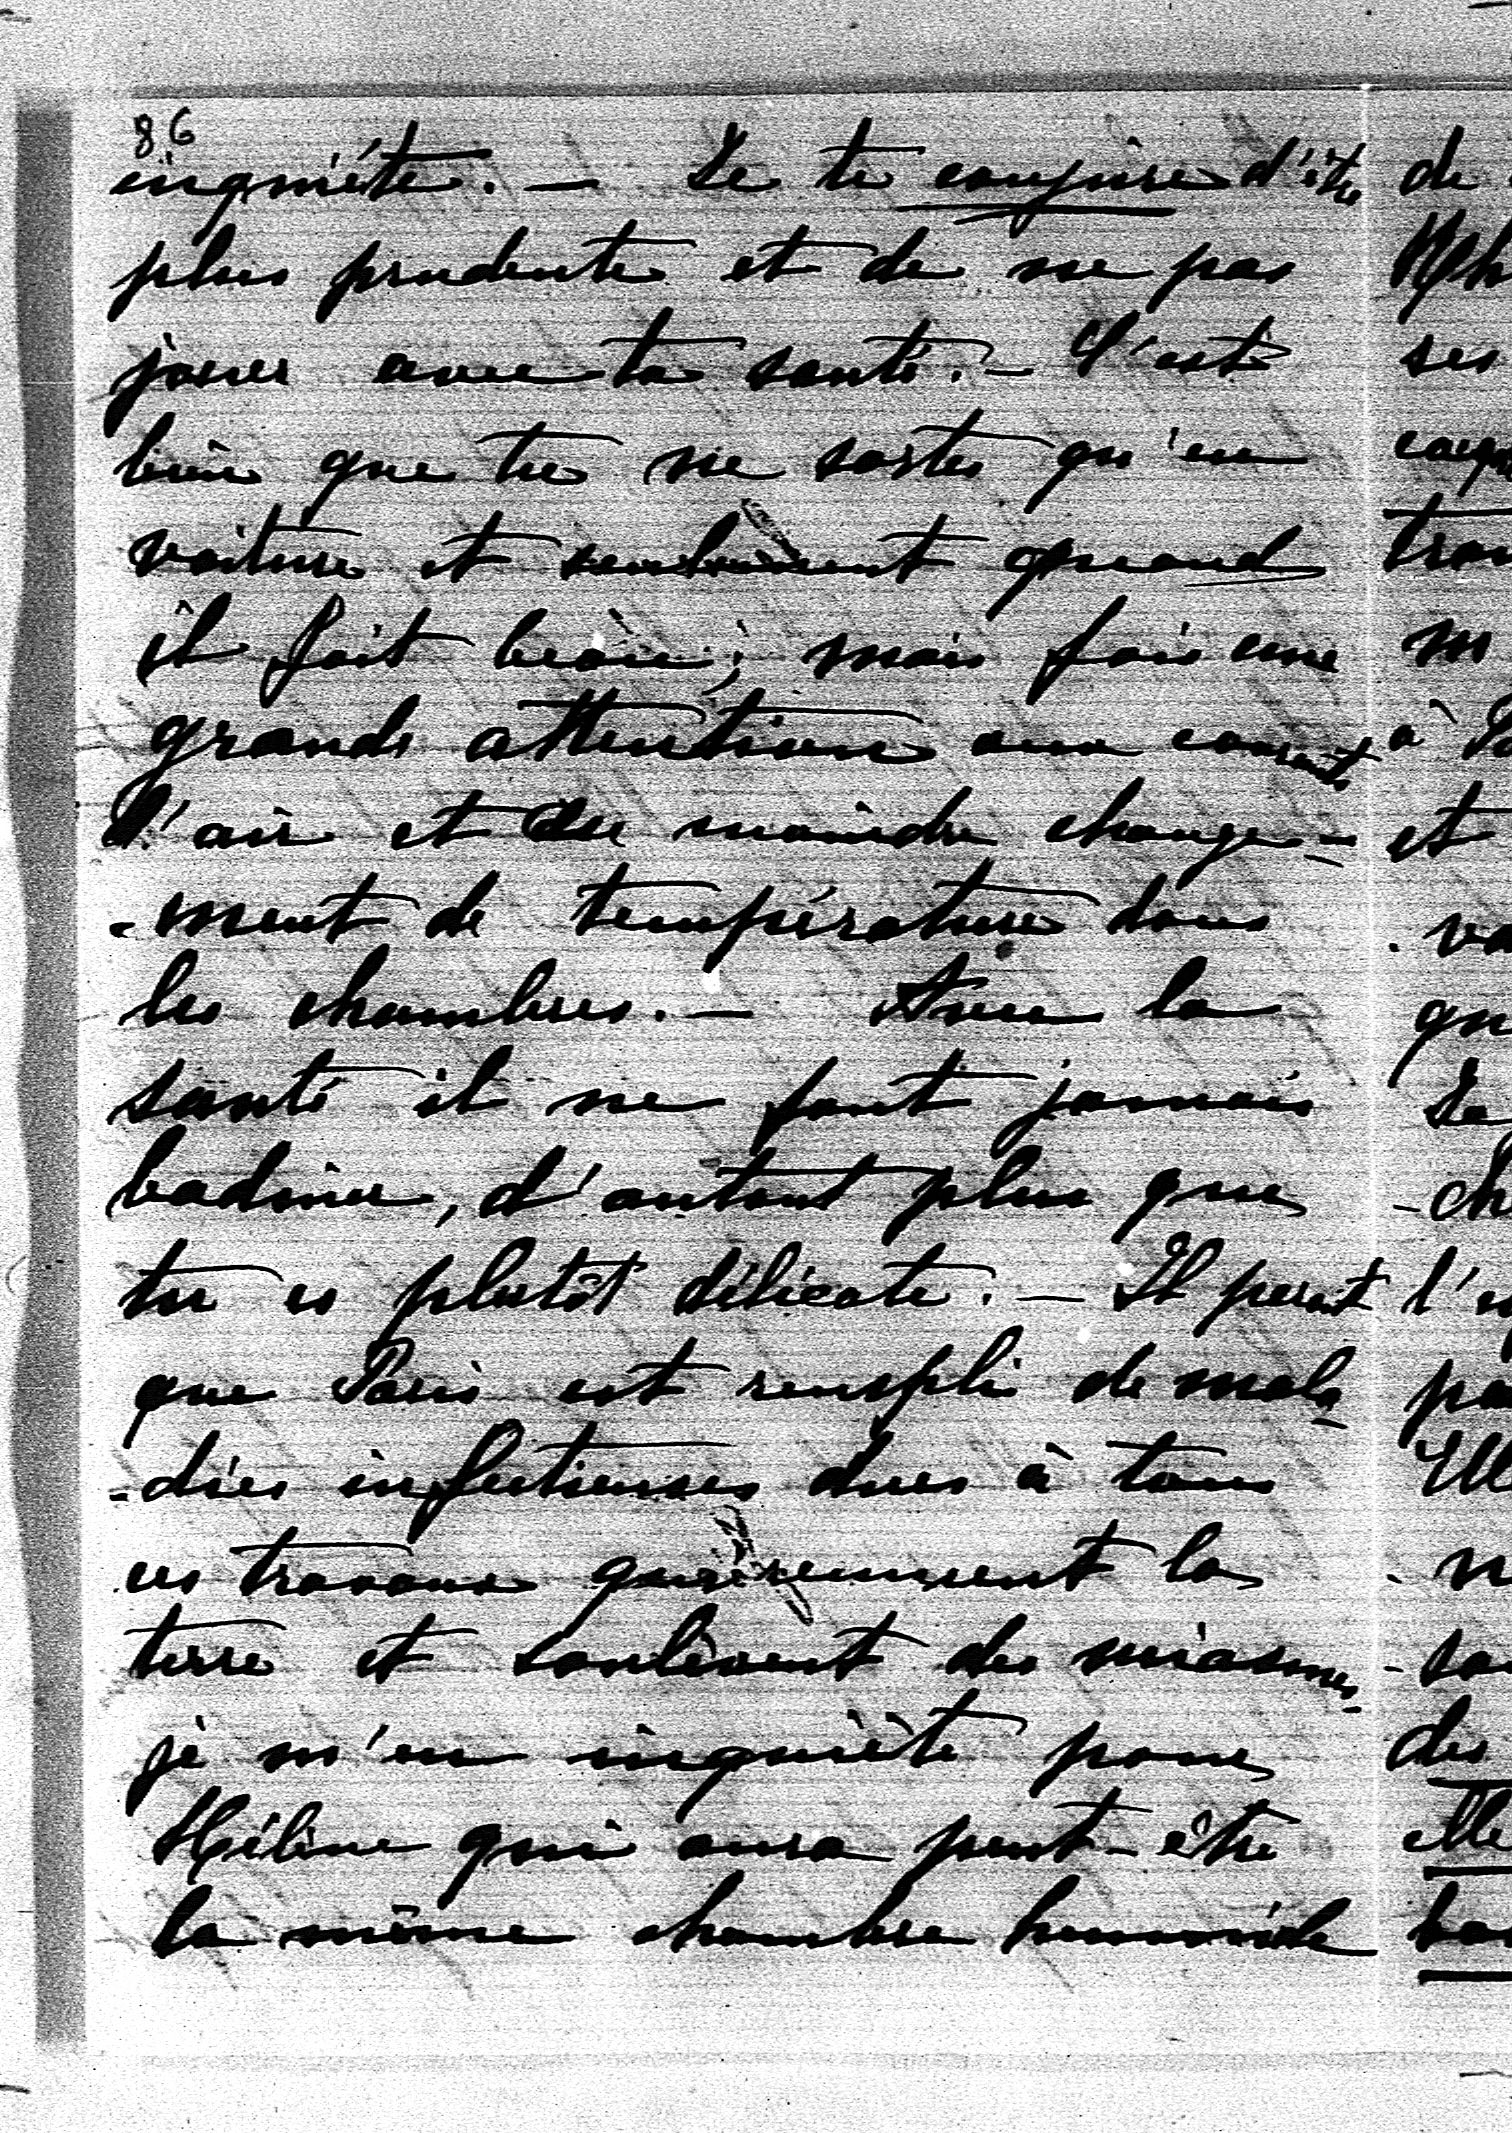 86
inquiéte. — Je te conjure d'être
plus prudente et de ne pas
jouer avec ta santé. — C'est
bien que tu ne sortes qu'en
voiture et seulement quand
il fait beau; mais fais une
grande attention aux courants
d'air et au moindre change-
-ment de température dans
les chambres. — Avec la
santé il ne faut jamais
badiner, d'autant plus que
tu es plutôt délicate. — Il parait
que Paris est rempli de mala-
-dies infectieuses dues à tous
ces travaux qui remuent la
terre et soulèvent des miasmes-
je m'en inquiète pour
Hélène qui aura peut-être
la même chambre humide
de
ses
à
et
des